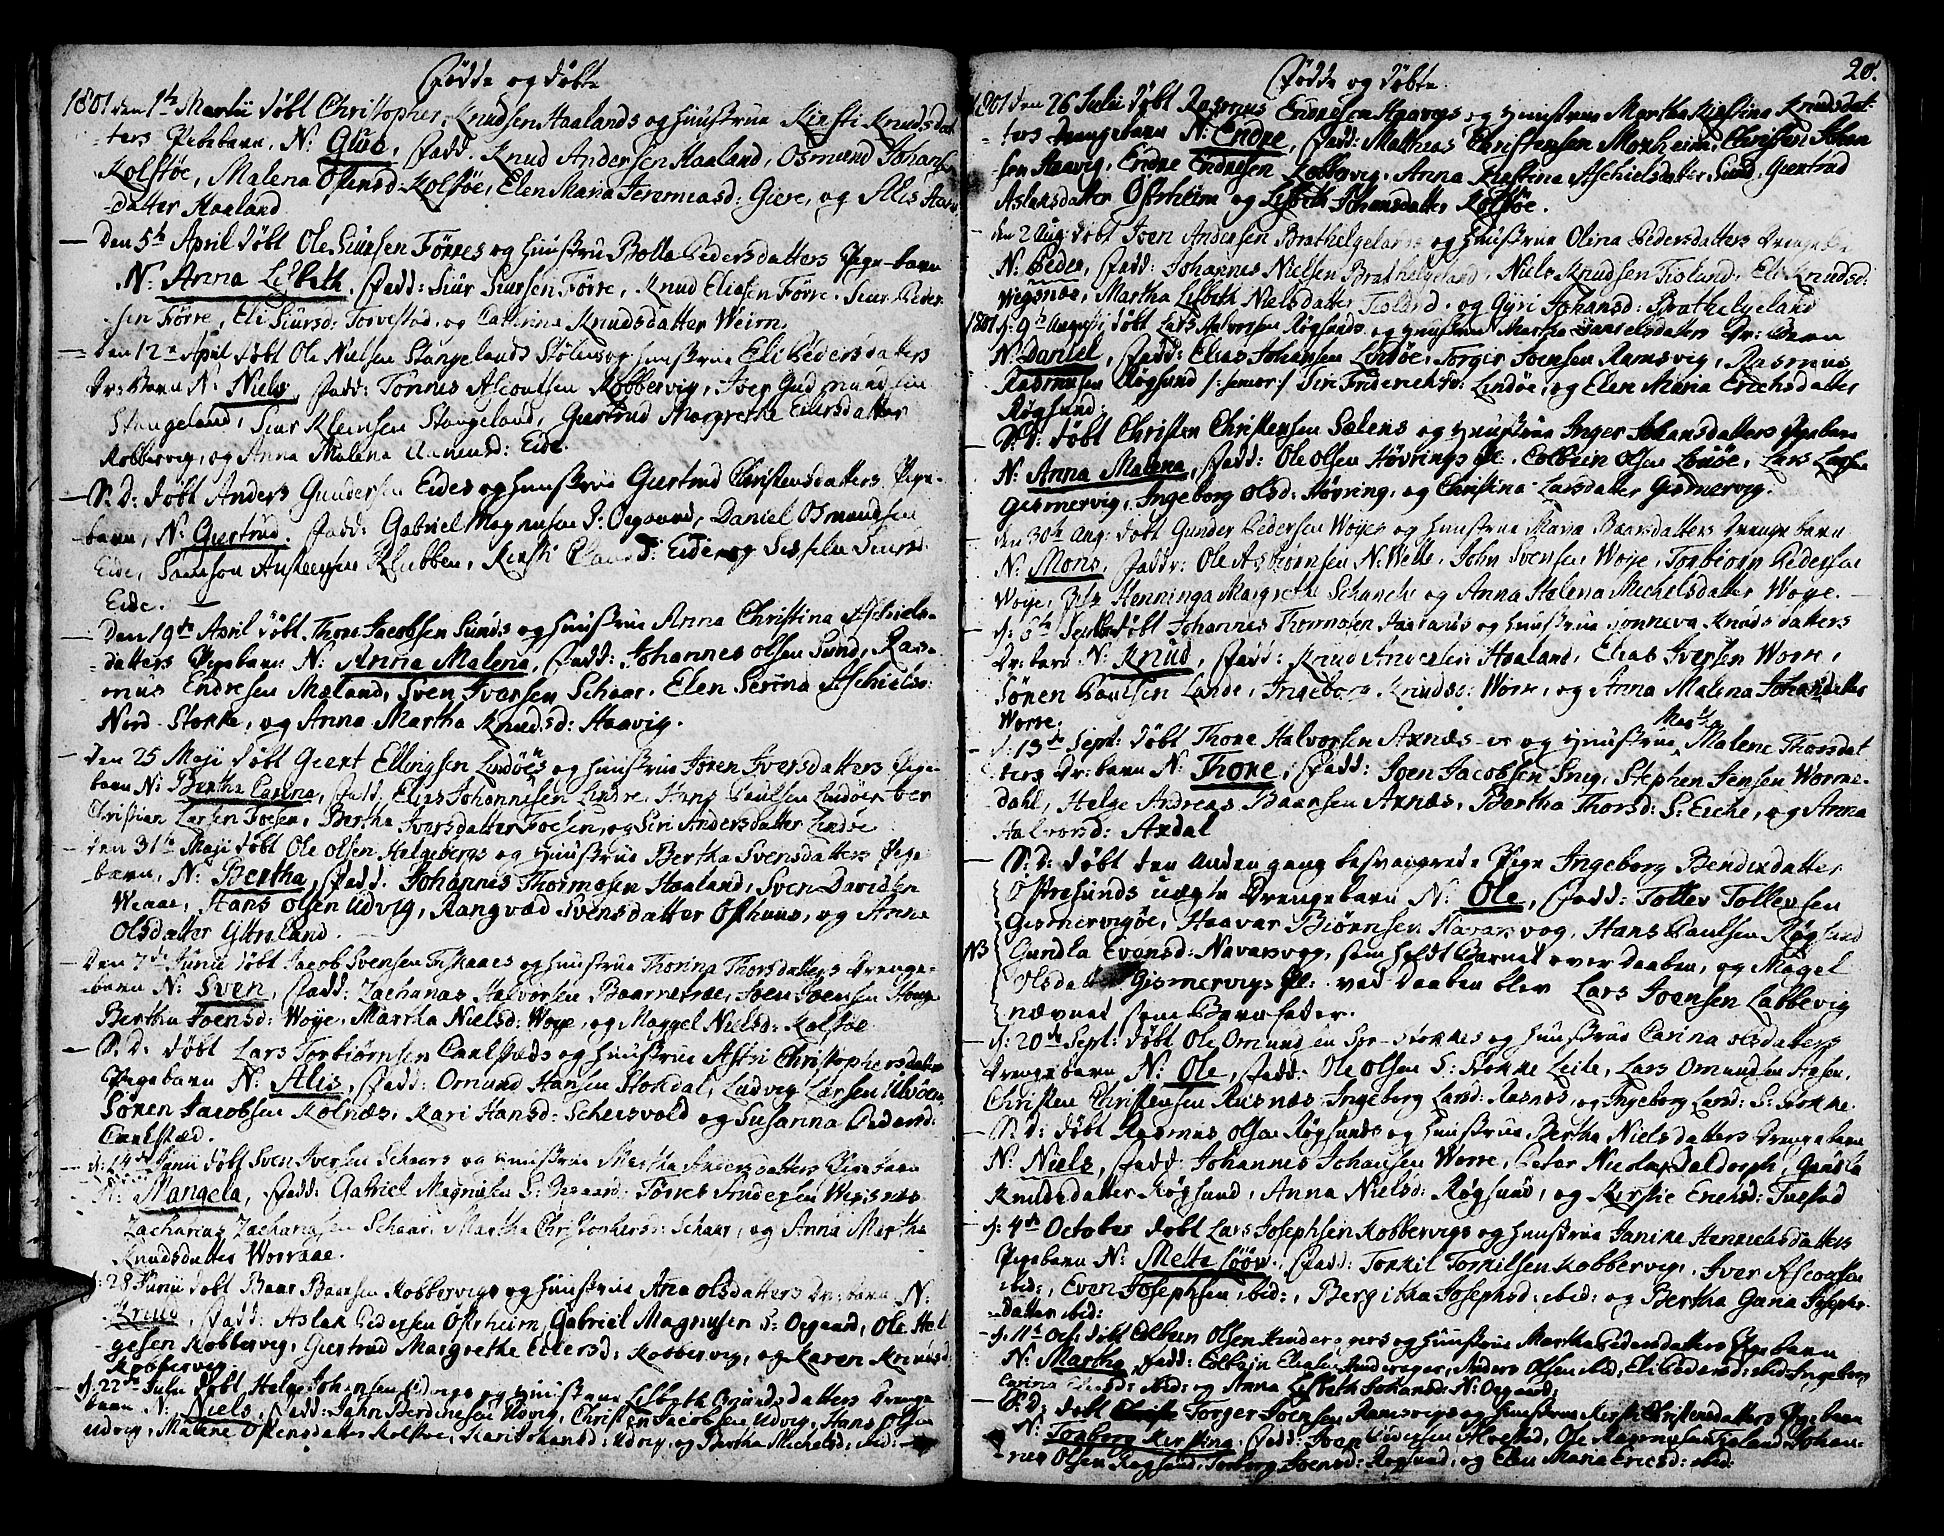 Fødde og døbte
1801 den 1te Martii døbt Christopher Knudsen Haalands og Hustrue Kirsti Knudsdat
ters Pigebarn, N: Giue, Fadd. Knud Andersen Haaland, Osmund Johansen
Kolstøe, Malena Ostensd: Kolstøe, Elen Maria Jeremiasd: Giere, og Alis Hans
datter Haaland
Den 5te April døbt Ole Siursen Førres og Hustru Bolla Pedersdatters Pige-barn
N: Anna Lisbeth, Fadd: Siur Siursen Førre, Knud Eliasen Førre. Siur Peder
sen Førre, Eli Siursd: Torvestad, og Cathrina Knudsdatter Weirn.
Den 12te April døbt Ole Nielsen Stangelands Stølens og Hustrue Eli Pedersdatters
Dr: Barn N: Niels, Fadd: Tønnes Kobbervig, Iver Gudmundsen
Stangeland, Siur Kleinsen Stangeland, Giertrud Margrethe Eilersdatter
Kobbervig, og Anna Malena Eide.
S: D: døbt Anders Gundersen Eides og Hustrue Giertrud Christensdatters Pige-
barn, N: Giertrud. Fadd: Gabriel Magnusen S: Oegaard, Daniel Osmundsen
Eide, Samson Klubben, Kirsti Eide og Siursd:
Eide.
Den 19de April døbt Thore Jacobsen Sunds og Hustrue Anna Christina Aschiels-
datters Pigebarn N: Anna Malena, Fadd: Johannes Olsen Sund, Ras-
mus Endresen Mæland, Sven Iversen Schaar, Elen Serina Aschielsd:
Nord-Stokke, og Anna Martha Knudsd: Haavig.
den 25 Maji døbt Giert Ellingsen Lindøes og Hustrue Joren Iversdatters Pige-
barn N: Bertha Carina, Fadd. Elias Johannesen Lindøe, Hans Paulsen Lindøe
Christian Larsen Foesen, Bertha Iversdatter Foesen, og Siri Andersdatter Lindøe
den 31te Maji døbt Ole Olsen Helgebergs og Hustrue Bertha Svensdatters Pige
barn, N: Bertha, Fadd. Johannes Thormosen Haaland, Sven Davidsen
Weaae, Hans Olsen Udvig, Rangvad Svensdatter Osthuus, og Anna
Olsdatter Ytreland.
Den 7de Junii døbt Jacob Svensen Fiskaaes og Hustrue Thorina Thorsdatters Drenge-
barn N: Sven, Fadd: Zacharias Halvorsen Baarnesnæ, Joen Joensen
Bertha Joensd: Woye, Martha Nielsd: Woye, og Maggel Nielsd: Kolstøe
S: D: døbt Lars Torbiørnsen Carlstæds og Hustrue Astri Christophersdatter
Pigebarn N: Alis, Fadd: Omund Hansen Stokdal, Ludvig Larsen
Søren Jacobsen Kolnæs, Kari Hansd: Scheisvold og Susanna Pedersd:
Carlstæd.
d: 14de Junii døbt Sven Iversen Schaars og Hustrue Martha Andersdatters Pige barn
N: Mangela, Fadd: Gabriel Magnusen S: Oegaard: Tørres
Zacharias Zachariasen Schaar, Martha Schaar, og Anna Martha
Knudsdatter Worraae.
d: 28 Junii døbt Baar Baarsen Kobbervigs og Hustrue Ana Olsdatters Dr: barn N:
Knud, Fadd: Aslak Pedersen Ostrheim, Gabriel Magnusen S: Oegaard, Ole Hel
gesen Kobbervig, Giertrud Margrethe Eilersd: Kobbervig, og Karen Knudsd:
Kobbervig.
d: 22de Julii døbt Helge Johansen Udvigs og Hustrue Lisbeth Omundsdatters Drenge
barn N: Niels, Fadd: Jahn Berdinesen Udvig, Christen Jacobsen Udvig, Hans Olsen
Udvig, Malene Ostensdatter Kolstøe, Kari Johansd: Udvig, og Bertha Michelsd: ibid:
Fødde og døbte
20.
1801 den 26 Julii døbt Rasmus Endresen Haavigs og Hustrue Martha Kirstina Knudsdat-
ters Drengebarn N: Endre, Fadd: Mathias Christensen Moxheim, Christen Johan
sen Haavig, Endre Endresen Kobbervig, Anna Kirstina Aschielsdatter Sund, Giertrud
Aslaksdatter Ostrheim og Lisbeth Johansdatter Kolstøe.
den 2 Aug: døbt Joen Andersen Brathelgelands og Hustrue Olina Pedersdatters Drenge
N: Peder, Fadd: Johannes Nielsen Brathelgeland, Niels Knudsen Tioland, Eli Knudsd:
Vigsnæs, Martha Lisbeth Nielsdatter Tioland, og Gyri Johansd: Brathelgeland
1801 d: 9de Augusti døbt Lars Halvorsen Røgsunds og Hustrue Martha Danielsdatters Dr: Barn
N: Daniel, Fadd: Elias Johansen Lindøe, Torger Joensen Ramsvig, Rasmus
Rasmusen Røgsund /: senior :/ Siri Friderichsd: Lindøe, og Elen Maria Erichsdatter
Røgsund.
S: D: døbt Christen Christensen Salens og Hustrue Inger Johansdatters Pigebarn
N: Anna Malena, Fadd: Ole Olsen Høvrings Ple. Colbein Olsen Lindøe, Lars Larsen
Gismervig, Ingeborg Olsd: Høvring, og Christina Larsdatter Gismervig.
den 30te Aug: døbt Gunder Pedersen Woyes og Hustrue Maria Baarsdatters Drenge barn
N: Mons, Faddr: Ole Asbiørnsen N: Wette, John Svensen Woye, Torbiørn Pedersen
Woye, Henninga Margretha Schanche og Anna Halena Michelsdatter Woye.
d: 6te Septbr døbt Johannes Thormosen Haalands og Hustrue Sonneva Knudsdatters
Dr: barn N: Knud, Fadd: Knud Andersen Haaland, Elias Iversen Worre,
Sören Paulsen Lande, Ingeborg Knudsd: Worre, og Anna Malena Johansdatter
Worre.
d: 13de Sept: døbt Thore Halvorsen Axnæs og Hustrue Martha Malene Thorsdat
ters Dr: barn N: Thore, Fadd: Joen Jacobsen Sneg, Stephen Jensen Worme-
dahl, Helge Andreas Baarsen Axnæs, Bertha Thorsd: S: Eiche, og Anna
Halvorsd: Axdal
S: D: døbt den anden gang besvangrede Pige Ingeborg Bendixdatter
Ostresunds uægte Drengebarn N: Ole, Fadd: Tollev Tollevsen
Gismervigøe, Haavar Biørnsen Navarsvog, Hans Paulsen Røgsund
NB Gundla Evensd: Navarsvog, som holdt Barnet over Daaben, og Magel
Olsdatter Gismervigs Pl: ved Daaben blev Lars Joensen Labbevig
nævnet som Barnfader.
d: 20de Sept: døbt Ole Omundsen Stokkes og Hustrue Carina Olsdatters
Drengebarn N: Ole, Fadd: Ole Olsen S: Stokke Leite, Lars Omundsen
Christen Christensen Rusnæs, Ingeborg Larsd: Rasnæs, og Ingeborg Larsd: S: Stokke.
S: D: døbt Rasmus Olsen Røgsunds og Hustrue Bertha Nielsdatters Drengebarn
N: Niels, Fadd: Johannes Johansen Worre, Peter Nicolay Daldorph, Gundla
Knudsdatter Røgsund, Anna Nielsd: Røgsund, og Kirstie Erichsd: Tuestad
d: 4de October døbt Lars Josephsen Kobbervigs og Hustrue Janike Henrichsdatters
Pigebarn N: Mette Søøv, Fadd: Torkil Torkilsen Kobbervig, Iver
ibid:, Even Josephsen ibid:, Bergitha Josephsd: ibid: og Bertha Gana Josephs-
datter ibid:
d: 11te Oct: døbt Colbein Olsen og Hustrue Martha Pedersdatters Pigebarn
N: Martha, Fadd: Colbein Anders Olsen ibid, Eli Pedersd: ibid: Ingeborg
Carina ibid: og Anna Lisbeth Johansd: N: Oegaard,
S: D: døbt Torger Joensen Ramsvigs og Hustrue Kirsti Christensdatters Pigebarn
N: Ingborg Kirstina, Fadd: Iver Ole Rasmusen Johan-
nes Olsen Røgsund, Joensd: Røgsund, og Elen Maria Ericsd: ibid: